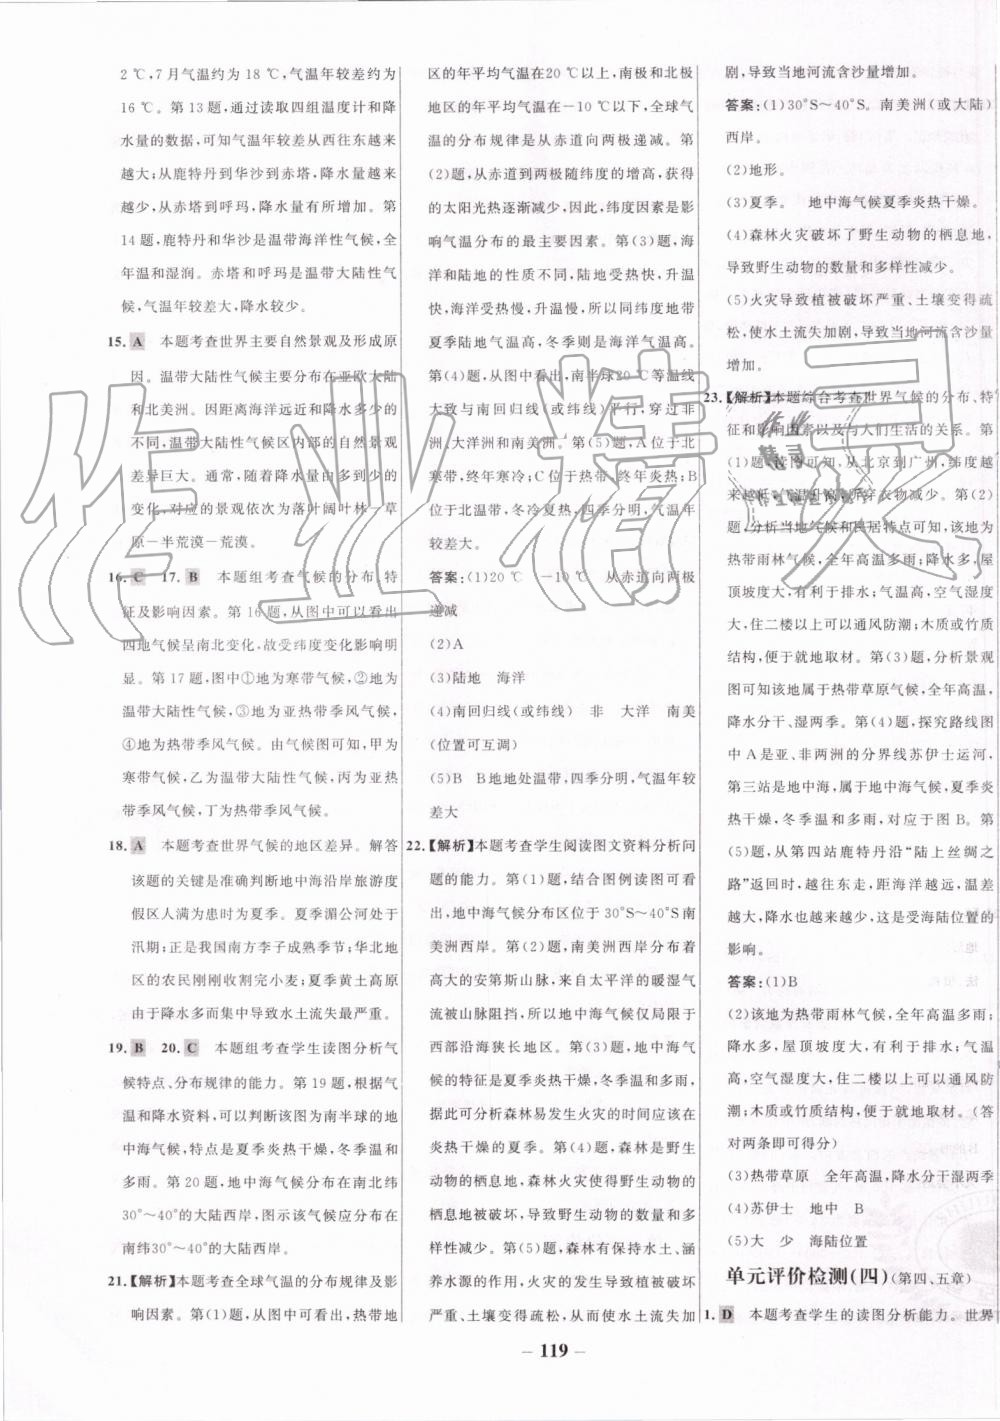 2 ℃,7月气温约为 18 ℃,气温年较差约为
16 ℃。第 13 题,通过读取四组温度计和降
水量的数据,可知气温年较差从西往东越来
越大;从鹿特丹到华沙到赤塔,降水量越来
越少,从赤塔到呼玛,降水量有所增加。第
14 题,鹿特丹和华沙是温带海洋性气候,全
年温和湿润。赤塔和呼玛是温带大陆性气
候,气温年较差大,降水较少。
15. A 本题考查世界主要自然景观及形成原
因。温带大陆性气候主要分布在亚欧大陆
和北美洲。因距离海洋远近和降水多少的
不同,温带大陆性气候区内部的自然景观
差异巨大。通常,随着降水量由多到少的
变化,对应的景观依次为落叶阔叶林-草
原-半荒漠-荒漠。
16. C 17. B 本题组考查气候的分布、特
征及影响因素。第 16 题,从图中可以看出
四地气候呈南北变化,故受纬度变化影响明
显。第 17 题,图中①地为寒带气候,②地为
温带大陆性气候,③地为亚热带季风气候,
④地为热带季风气候。由气候图可知,甲为
寒带气候,乙为温带大陆性气候,丙为亚热
带季风气候,丁为热带季风气候。
18. A 本题考查世界气候的地区差异。解答
该题的关键是准确判断地中海沿岸旅游度
假区人满为患时为夏季。夏季湄公河处于
汛期;正是我国南方李子成熟季节;华北地
区的农民刚刚收割完小麦;夏季黄土高原
由于降水多而集中导致水土流失最严重。
19. B 20. C 本题组考查学生读图分析气
候特点、分布规律的能力。第 19 题,根据气
温和降水资料,可以判断该图为南半球的地
中海气候,特点是夏季炎热干燥,冬季温和多
雨。第 20 题,地中海气候分布在南北纬
30°～40°的大陆西岸,图示气候应分布在
南纬30°～40°的大陆西岸。
21.【解析】本题考查全球气温的分布规律及影
响因素。第(1)题,从图中可以看出,热带地
区的年平均气温在20 ℃以上,南极和北极
地区的年平均气温在-10 ℃以下,全球气
温的分布规律是从赤道向两极递减。第
(2)题,从赤道到两极随纬度的增高,获得
的太阳光热逐渐减少,因此,纬度因素是影
响气温分布的最主要因素。第(3)题,海
洋和陆地的性质不同,陆地受热快,升温
快,海洋受热慢,升温慢,所以同纬度地带
夏季陆地气温高,冬季则是海洋气温高。
第(4)题,从图中看出,南半球20 ℃等温线
大致与南回归线(或纬线)平行,穿过非
洲、大洋洲和南美洲。第(5)题,A位于北
寒带,终年寒冷;C位于热带,终年炎热;B
位于北温带,冬冷夏热,四季分明,气温年
较差大。
答案:(1)20 ℃ -10 ℃ 从赤道向两极
递减
(2)A
(3)陆地 海洋
(4)南回归线(或纬线) 非 大洋 南美
(位置可互调)
(5)B B地地处温带,四季分明,气温年较
差大
22.【解析】本题考查学生阅读图文资料分析问
题的能力。第(1)题,结合图例读图可看
出,地中海气候分布区位于 30°S～40°S 南
美洲西岸。第(2)题,南美洲西岸分布着
高大的安第斯山脉,来自太平洋的暖湿气
流被山脉阻挡,所以地中海气候仅局限于
西部沿海狭长地区。第(3)题,地中海气
候的特征是夏季炎热干燥,冬季温和多雨,
据此可分析森林易发生火灾的时间应该在
炎热干燥的夏季。第(4)题,森林是野生
动物的栖息地,森林火灾使得野生动物的
栖息地被破坏,导致野生动物的数量和多
样性减少。第(5)题,森林有保持水土、涵
养水源的功能,火灾的发生导致植被破坏
严重、土壤变得疏松,从而使水土流失加
剧,导致当地河流含沙量增加。
答案:(1)30°S～40°S。南美洲(或大陆)
西岸。
(2)地形。
(3)夏季。 地中海气候夏季炎热干燥。
(4)森林火灾破坏了野生动物的栖息地,
导致野生动物的数量和多样性减少。
(5)火灾导致植被破坏严重、土壤变得疏
松,使水土流失加剧,导致当地河流含沙量
增加。
23.【解析】本题综合考查世界气候的分布、特
征和影响因素以及与人们生活的关系。第
(1)题,读图可知,从北京到广州,纬度越
来越低,气温升高,所穿衣物减少。第(2)
题,分析当地气候和民居特点可知,该地为
热带雨林气候,全年高温多雨;降水多,屋
顶坡度大,有利于排水;气温高,空气湿度
大,住二楼以上可以通风防潮;木质或竹质
结构,便于就地取材。第(3)题,分析景观
图可知该地属于热带草原气候,全年高温,
降水分干、湿两季。第(4)题,探究路线图
中 A是亚、非两洲的分界线苏伊士运河,
第三站是地中海,该地属于地中海气候,夏
季炎热干燥,冬季温和多雨,对应于图 B。第
(5)题,从第四站鹿特丹沿“陆上丝绸之
路”返回时,越往东走,距海洋越远,温差
越大,降水也越来越少,这是受海陆位置的
影响。
答案:(1)B
(2)该地为热带雨林气候,全年高温多雨;
降水多,屋顶坡度大,有利于排水;气温
高,空气湿度大,住二楼以上可以通风防
潮;木质或竹质结构,便于就地取材。(答
对两条即可得分)
(3)热带草原 全年高温,降水分干湿两季
(4)苏伊士 地中 B
(5)大 少 海陆位置
单元评价检测(四)(第四、五章)
1. D 本题考查学生的读图分析能力。世界
- 119 -
作业精灵